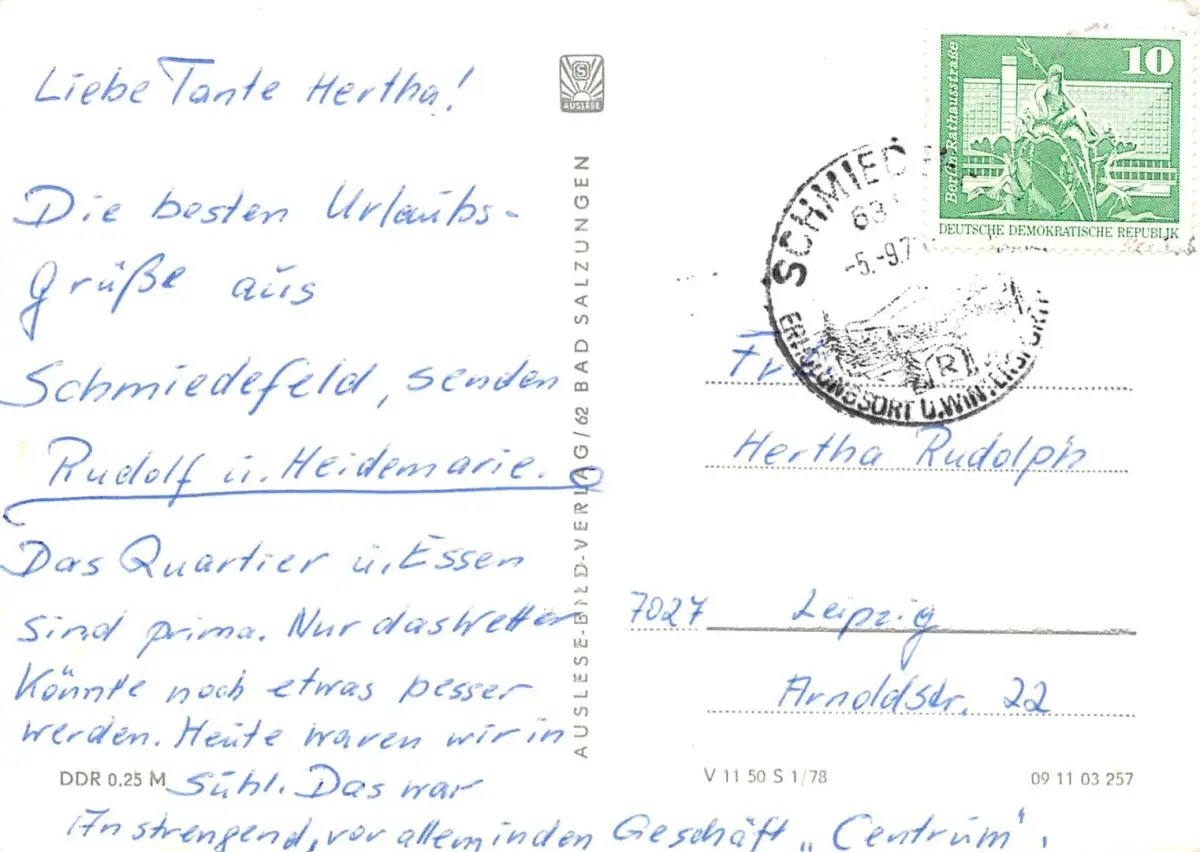 Liebe Tante Hertha!
Die besten Urlaubs-
grüße aus
Schmiedefeld, senden
Rudolf u. Heidemarie.
Das Quartier u. Essen
sind prima. Nur das Wetter
könnte noch etwas besser
werden. Heute waren wir in
Suhl. Das war
Anstrengend, vor allem in den Geschäft „Centrum".
S
AUSLESE
AUSLESE-BILD-VERLAG/62 BAD SALZUNGEN
DDR 0,25 M
10
Berlin-Rathausstraße
DEUTSCHE DEMOKRATISCHE REPUBLIK
SCHMIED
63
-5.-9.7
R
ERHOLUNGSORT U. WINTERSPORT
Frau
Hertha Rudolph
7027 Leipzig
Arnoldstr. 22
V 11 50 S 1/78
09 11 03 257